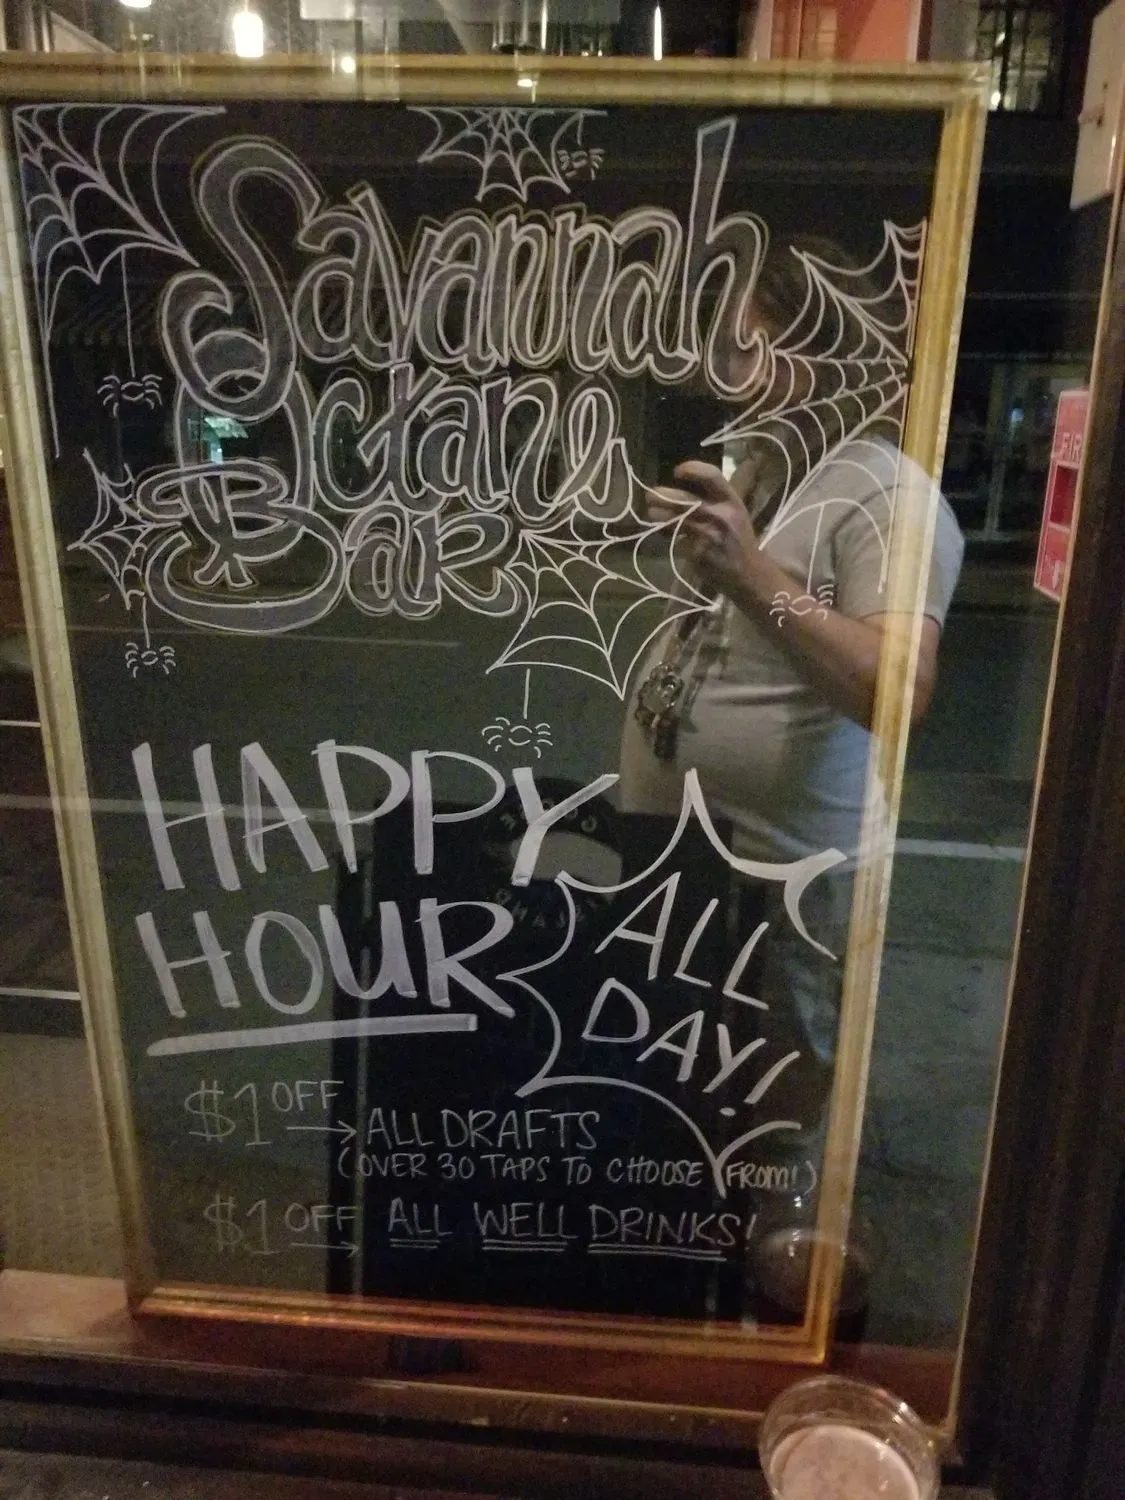 Savannah
Octane
Bar
HAPPY
HOUR
ALL
DAY!
$1 OFF → ALL DRAFTS
(OVER 30 TAPS TO CHOOSE FROM!)
$1 OFF → ALL WELL DRINKS!